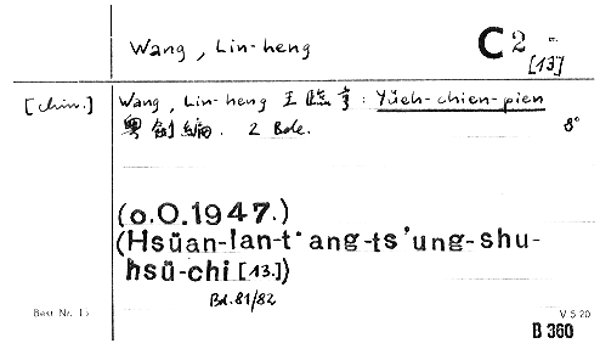 Wang, Lin-heng
C 2
[13]
[chin.]
Wang, Lin-heng 王臨亨: Yüeh-chien-pien
粵劍編. 2 Bde. 8°
(o.O.1947.)
(Hsüan-lan-t'ang-ts'ung-shu-
hsü-chi [13.])
Bd. 81/82
Best Nr. 15
V 5 20
B 360